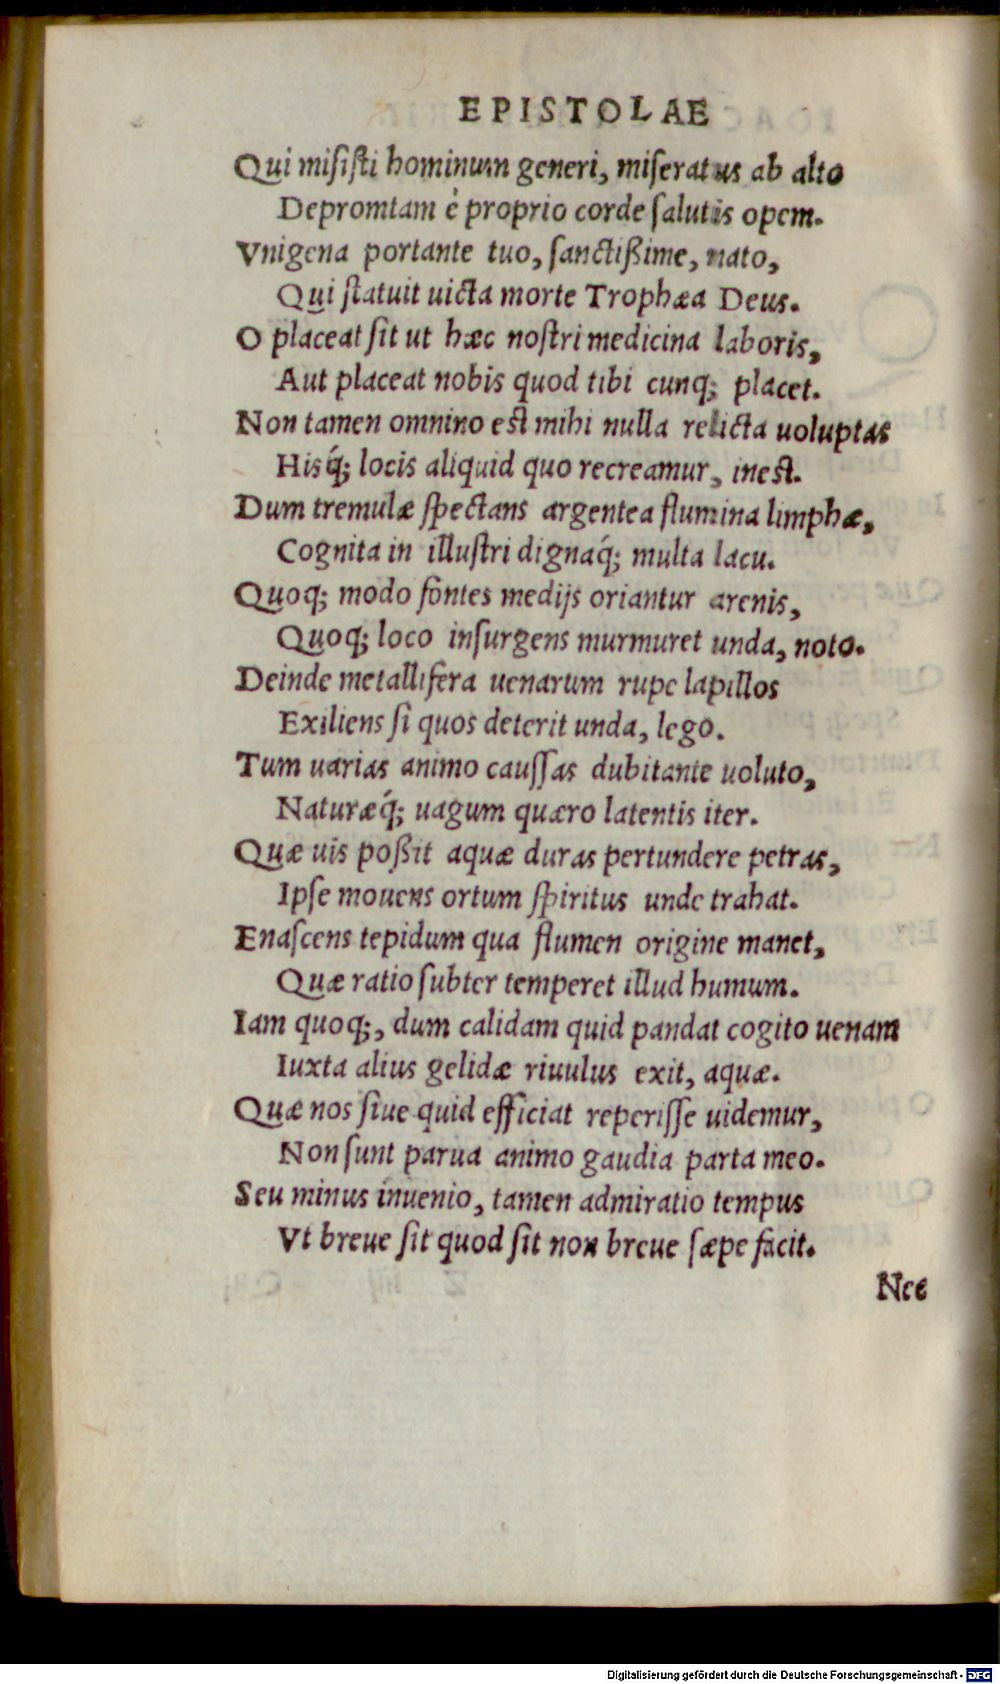 EPISTOLAE
Qui misisti hominum generi, miseratus ab alto
Depromtam è proprio corde salutis opem.
Vnigena portante tuo, sanctißime, nato,
Qui statuit uicta morte Trophæa Deus.
O placeat sit ut hæc nostri medicina laboris,
Aut placeat nobis quod tibi cunq; placet.
Non tamen omnino est mihi nulla relicta uoluptas
Hisq́; locis aliquid quo recreamur, inest.
Dum tremulæ spectans argentea flumina limphæ,
Cognita in illustri dignaq́; multa lacu.
Quoq; modo fontes medijs oriantur arenis,
Quoq; loco insurgens murmuret unda, noto.
Deinde metallifera uenarum rupe lapillos
Exiliens si quos deterit unda, lego.
Tum uarias animo caussas dubitante uoluto,
Naturæq́; uagum quæro latentis iter.
Quæ uis poßit aquæ duras pertundere petras,
Ipse mouens ortum spiritus unde trahat.
Enascens tepidum qua flumen origine manet,
Quæ ratio subter temperet illud humum.
Iam quoq;, dum calidam quid pandat cogito uenam
Iuxta alius gelidæ riuulus exit, aquæ.
Quæ nos siue quid efficiat reperisse uidemur,
Non sunt parua animo gaudia parta meo.
Seu minus inuenio, tamen admiratio tempus
Vt breue sit quod sit non breue sæpe facit.
Nec
Digitalisierung gefördert durch die Deutsche Forschungsgemeinschaft - DFG